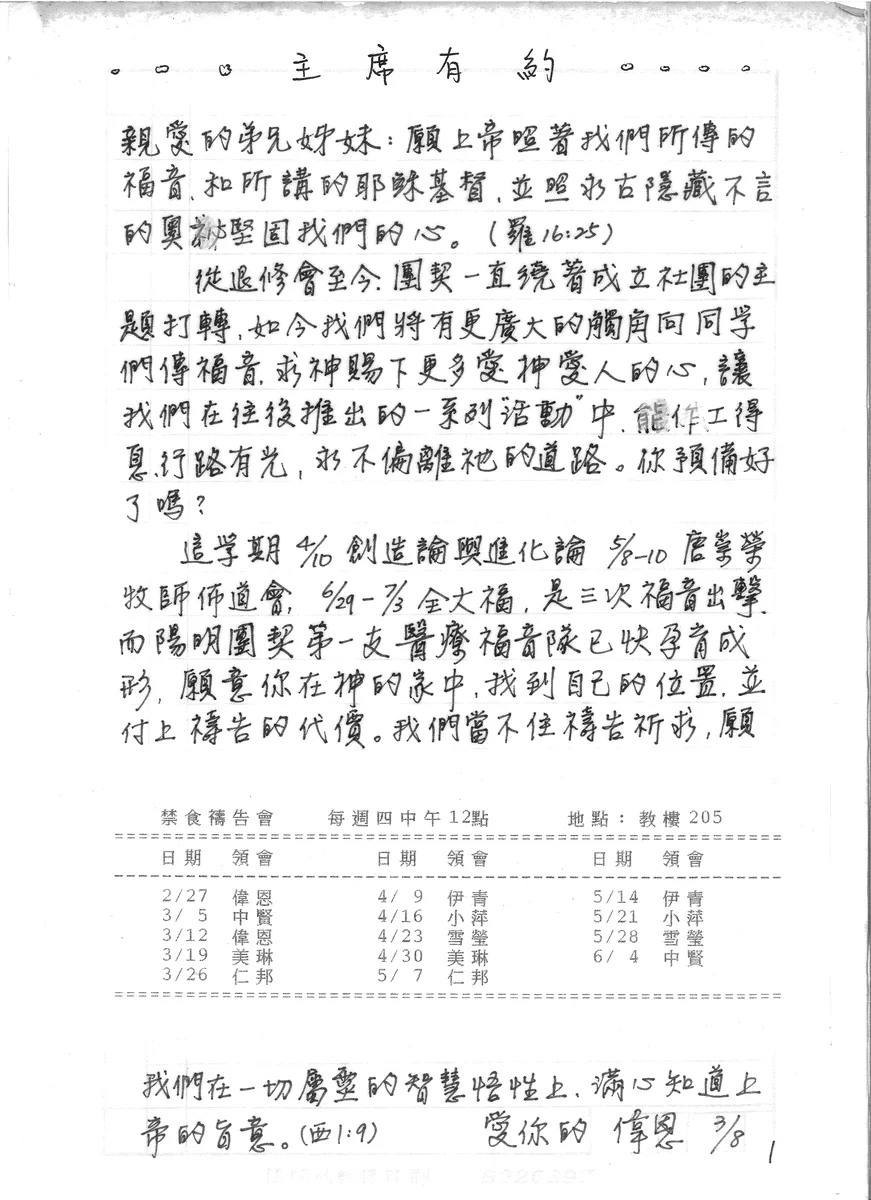 。。。 主席有約 。。。。
親愛的弟兄姊妹：願上帝照著我們所傳的
福音、和所講的耶穌基督，並照永古隱藏不言
的奧祕堅固我們的心。（羅16:25）
從退修會至今，團契一直繞著成立社團的主
題打轉，如今我們將有更廣大的觸角向同學
們傳福音，求神賜下更多愛神愛人的心，讓
我們在往後推出的一系列"活動"中，能作工得
息、行路有光，永不偏離祂的道路。你預備好
了嗎？
這学期 4/10 創造論與進化論 5/8-10 唐崇榮
牧師佈道會，6/29-7/3 全大福，是三次福音出擊，
而陽明團契第一支醫療福音隊已快孕育成
形，願意你在神的家中，找到自己的位置，並
付上禱告的代價。我們當不住禱告祈求，願
禁食禱告會 每週四中午12點 地點：教樓205
==========================================================
日期 領會 日期 領會 日期 領會
----------------------------------------------------------
2/27 偉恩 4/ 9 伊青 5/14 伊青
3/ 5 中賢 4/16 小萍 5/21 小萍
3/12 偉恩 4/23 雪瑩 5/28 雪瑩
3/19 美琳 4/30 美琳 6/ 4 中賢
3/26 仁邦 5/ 7 仁邦
==========================================================
我們在一切屬靈的智慧悟性上，滿心知道上
帝的旨意。(西1:9) 愛你的 偉恩 3/8
1